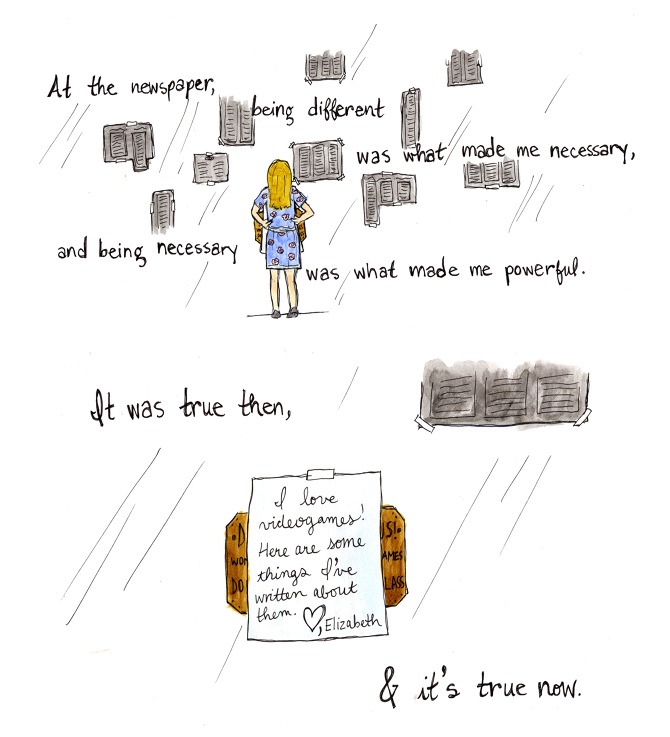 At the newspaper,
being different
was what made me necessary,
and being necessary
was what made me powerful.
It was true then,
I love
videogames!
Here are some
things I've
written about
them. ♡, Elizabeth
DO
AMES
LASS
& it's true now.